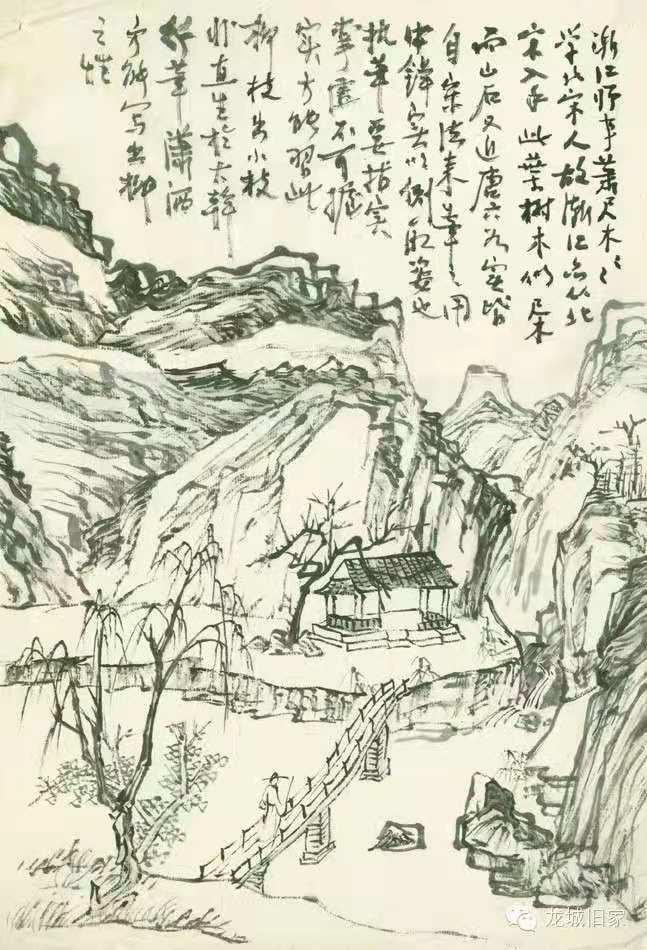 渐江师事萧尺木尺木
学北宋人故渐江亦从北
宋入手此叶树木似尺木
而山石又近唐六如实皆
自宋法来笔之用
中锋实以侧取姿也
执笔要指实
掌虚不可握
实方能习此
柳枝出小枝
时直生于大干
行笔潇洒
方能写出柳
之性
龙城旧家